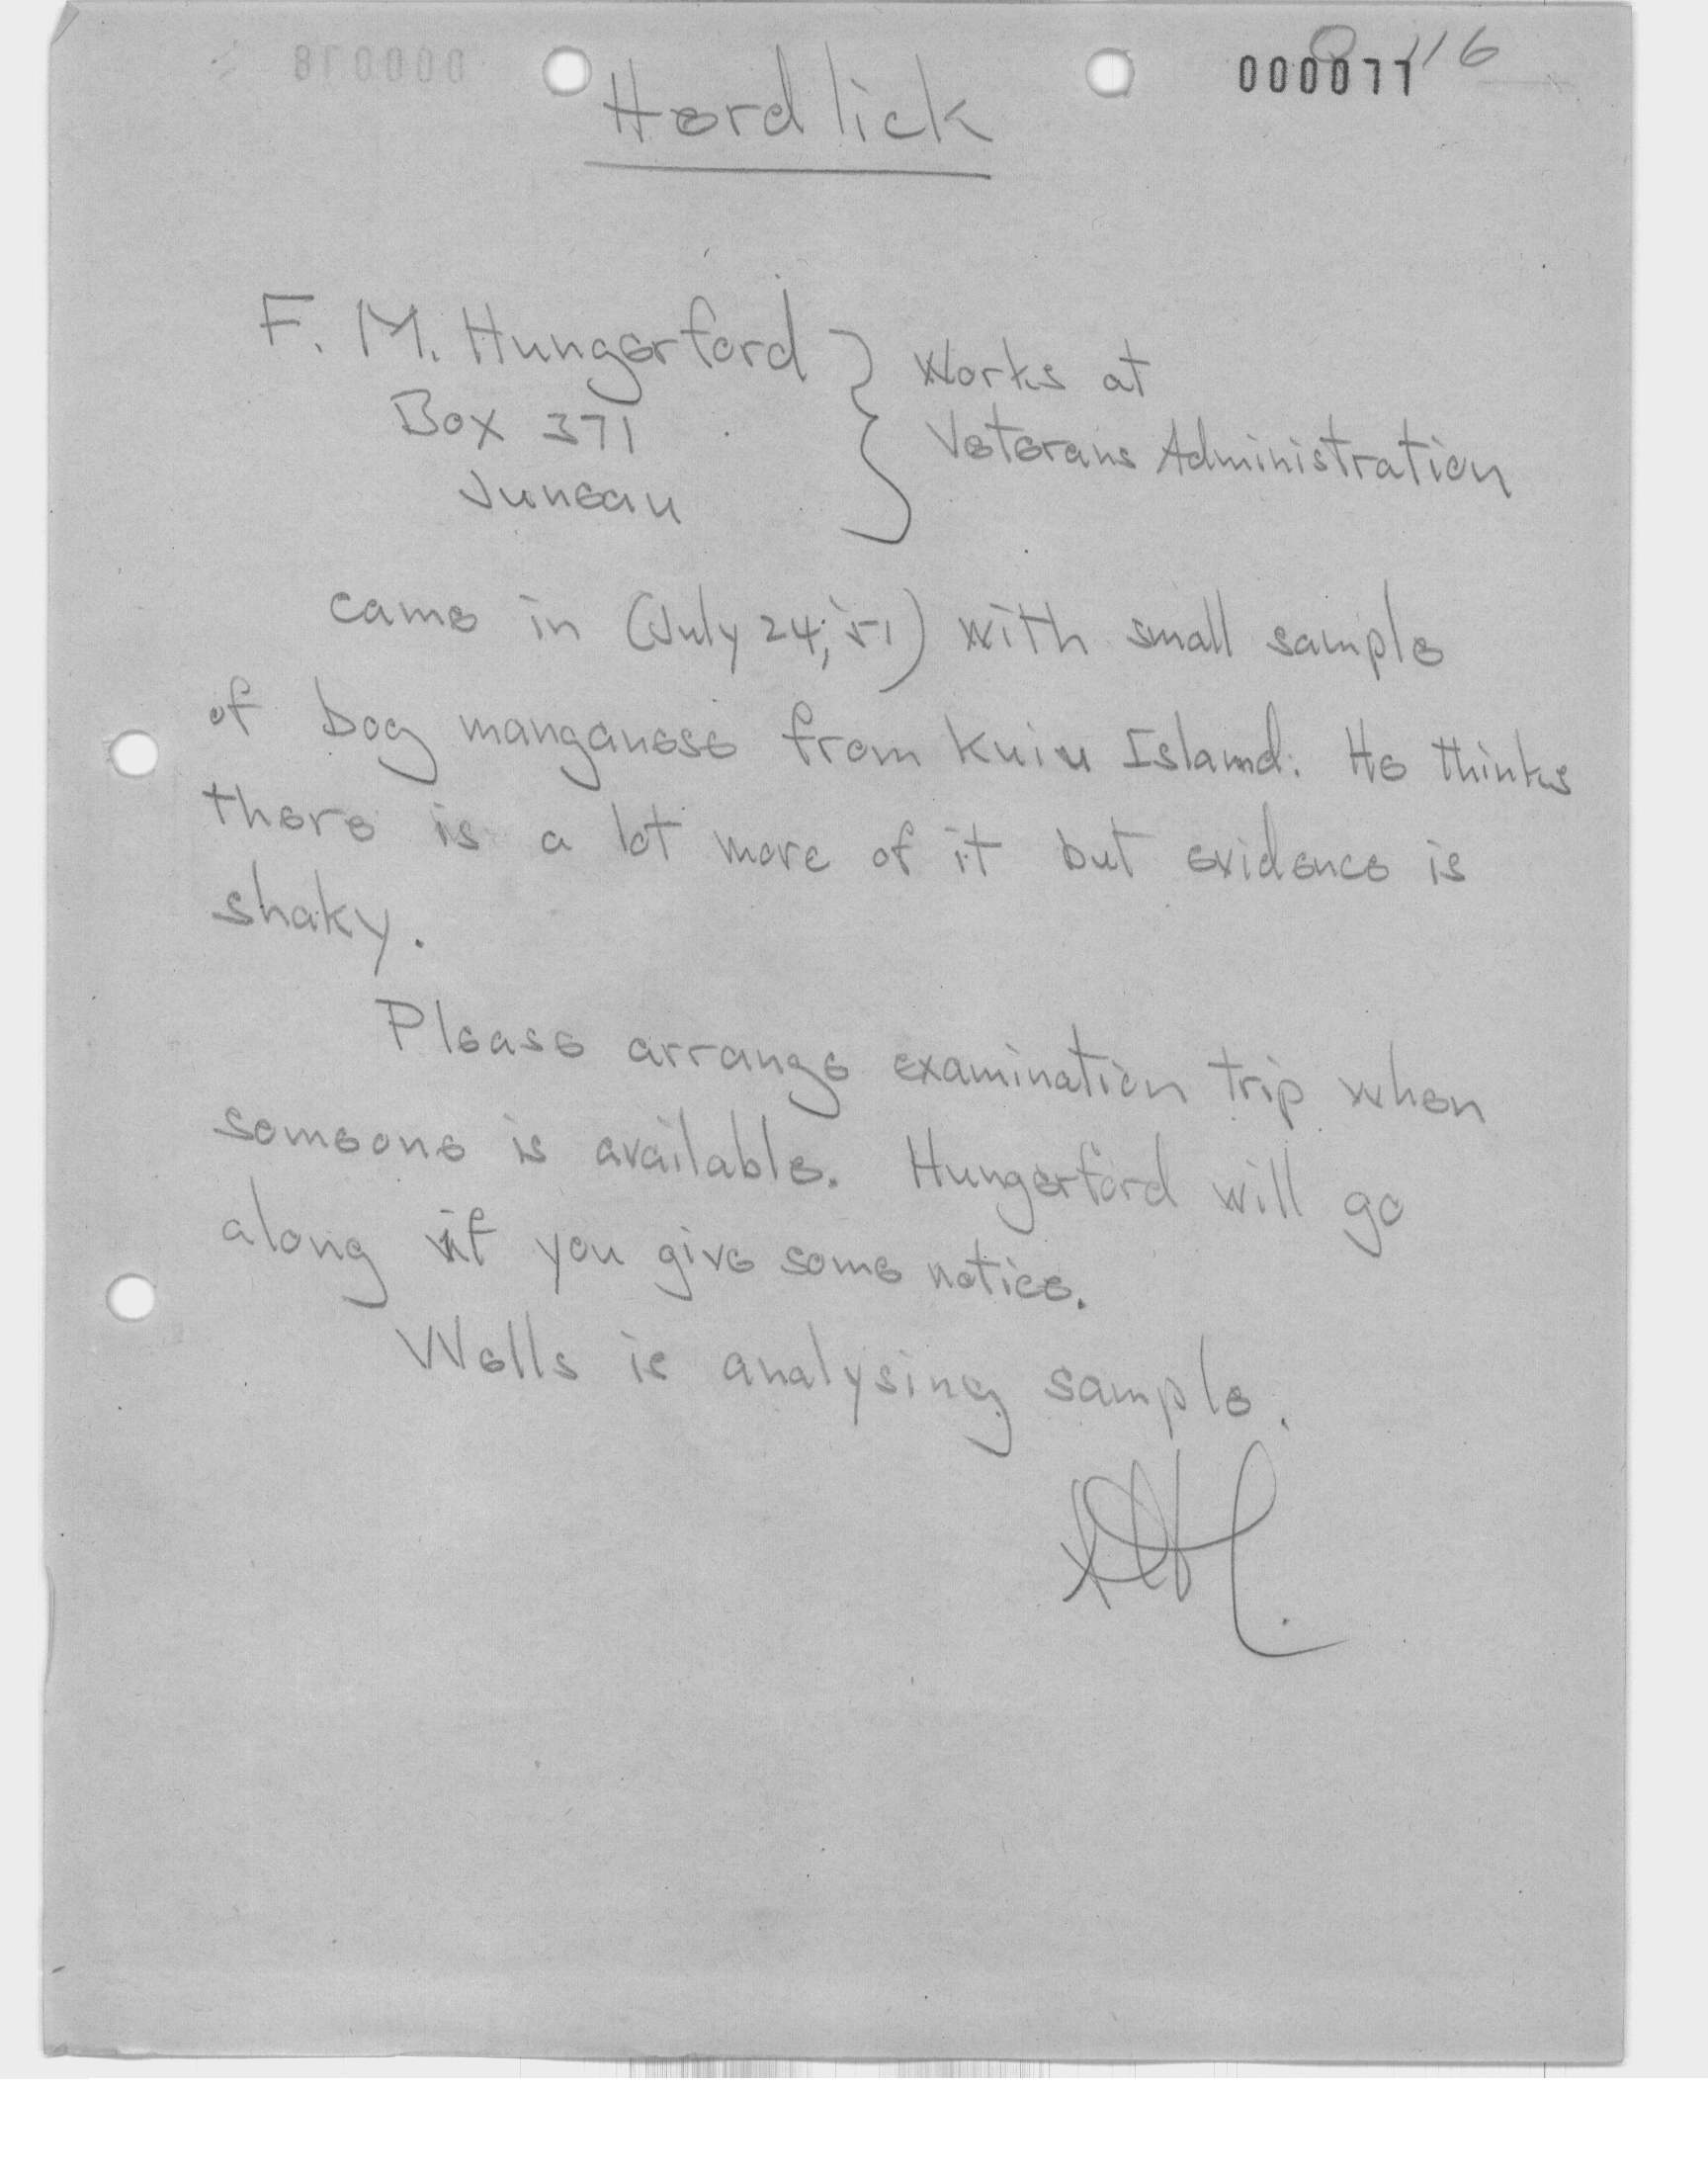 000077
116
Herdlick
F. M. Hungerford } Works at
Box 371 Veterans Administration
Juneau
came in (July 24, '51) with small sample
of bog manganese from Kuiu Island. He thinks
there is a lot more of it but evidence is
shaky.
Please arrange examination trip when
someone is available. Hungerford will go
along if you give some notice.
Wells is analysing sample.